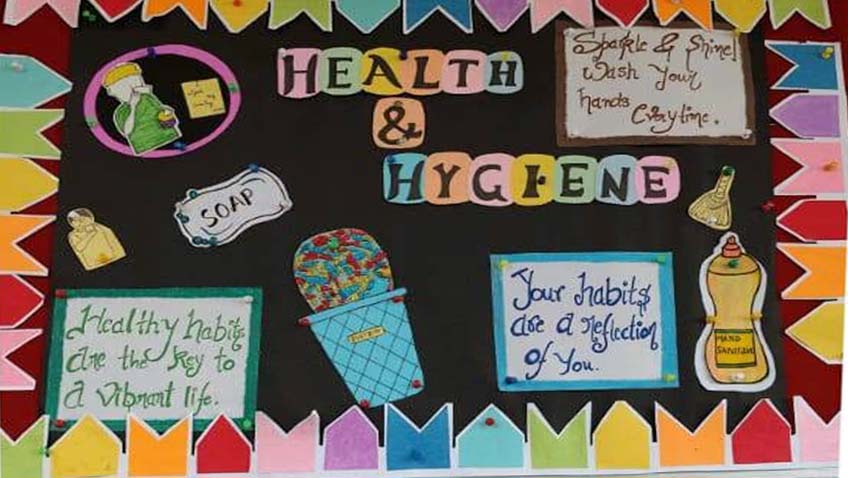 HEALTH
&
HYGIENE
Sparkle & Shine!
Wash Your
hands
Everytime.
SOAP
Healthy habits
are the key to
a vibrant life.
DUSTBIN
Your habits
are a reflection
of You.
HAND
SANITIZER